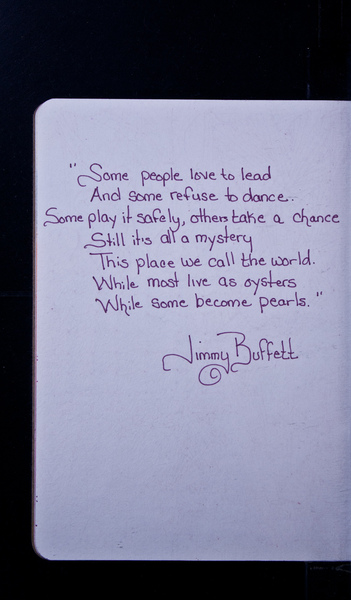 "Some people love to lead
And some refuse to dance..
Some play it safely, others take a chance
Still it's all a mystery
This place we call the world.
While most live as oysters
While some become pearls."
Jimmy Buffett